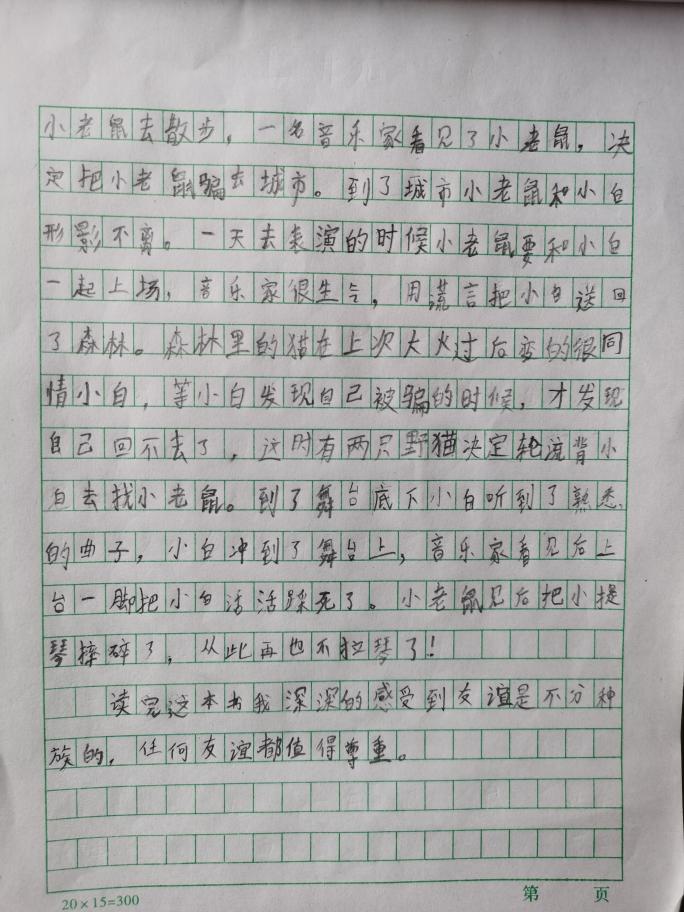 小老鼠去散步，一名音乐家看见了小老鼠，决
定把小老鼠骗去城市。到了城市小老鼠和小白
形影不离。一天去表演的时候小老鼠要和小白
一起上场，音乐家很生气，用谎言把小白送回
了森林。森林里的猫在上次大火过后变的很同
情小白，等小白发现自己被骗的时候，才发现
自己回不去了，这时有两只野猫决定轮流背小
白去找小老鼠。到了舞台底下小白听到了熟悉
的曲子，小白冲到了舞台上，音乐家看见后上
台一脚把小白活活踩死了。小老鼠见后把小提
琴摔碎了，从此再也不拉琴了！
读完这本书我深深的感受到友谊是不分种
族的，任何友谊都值得尊重。
20×15=300
第 页